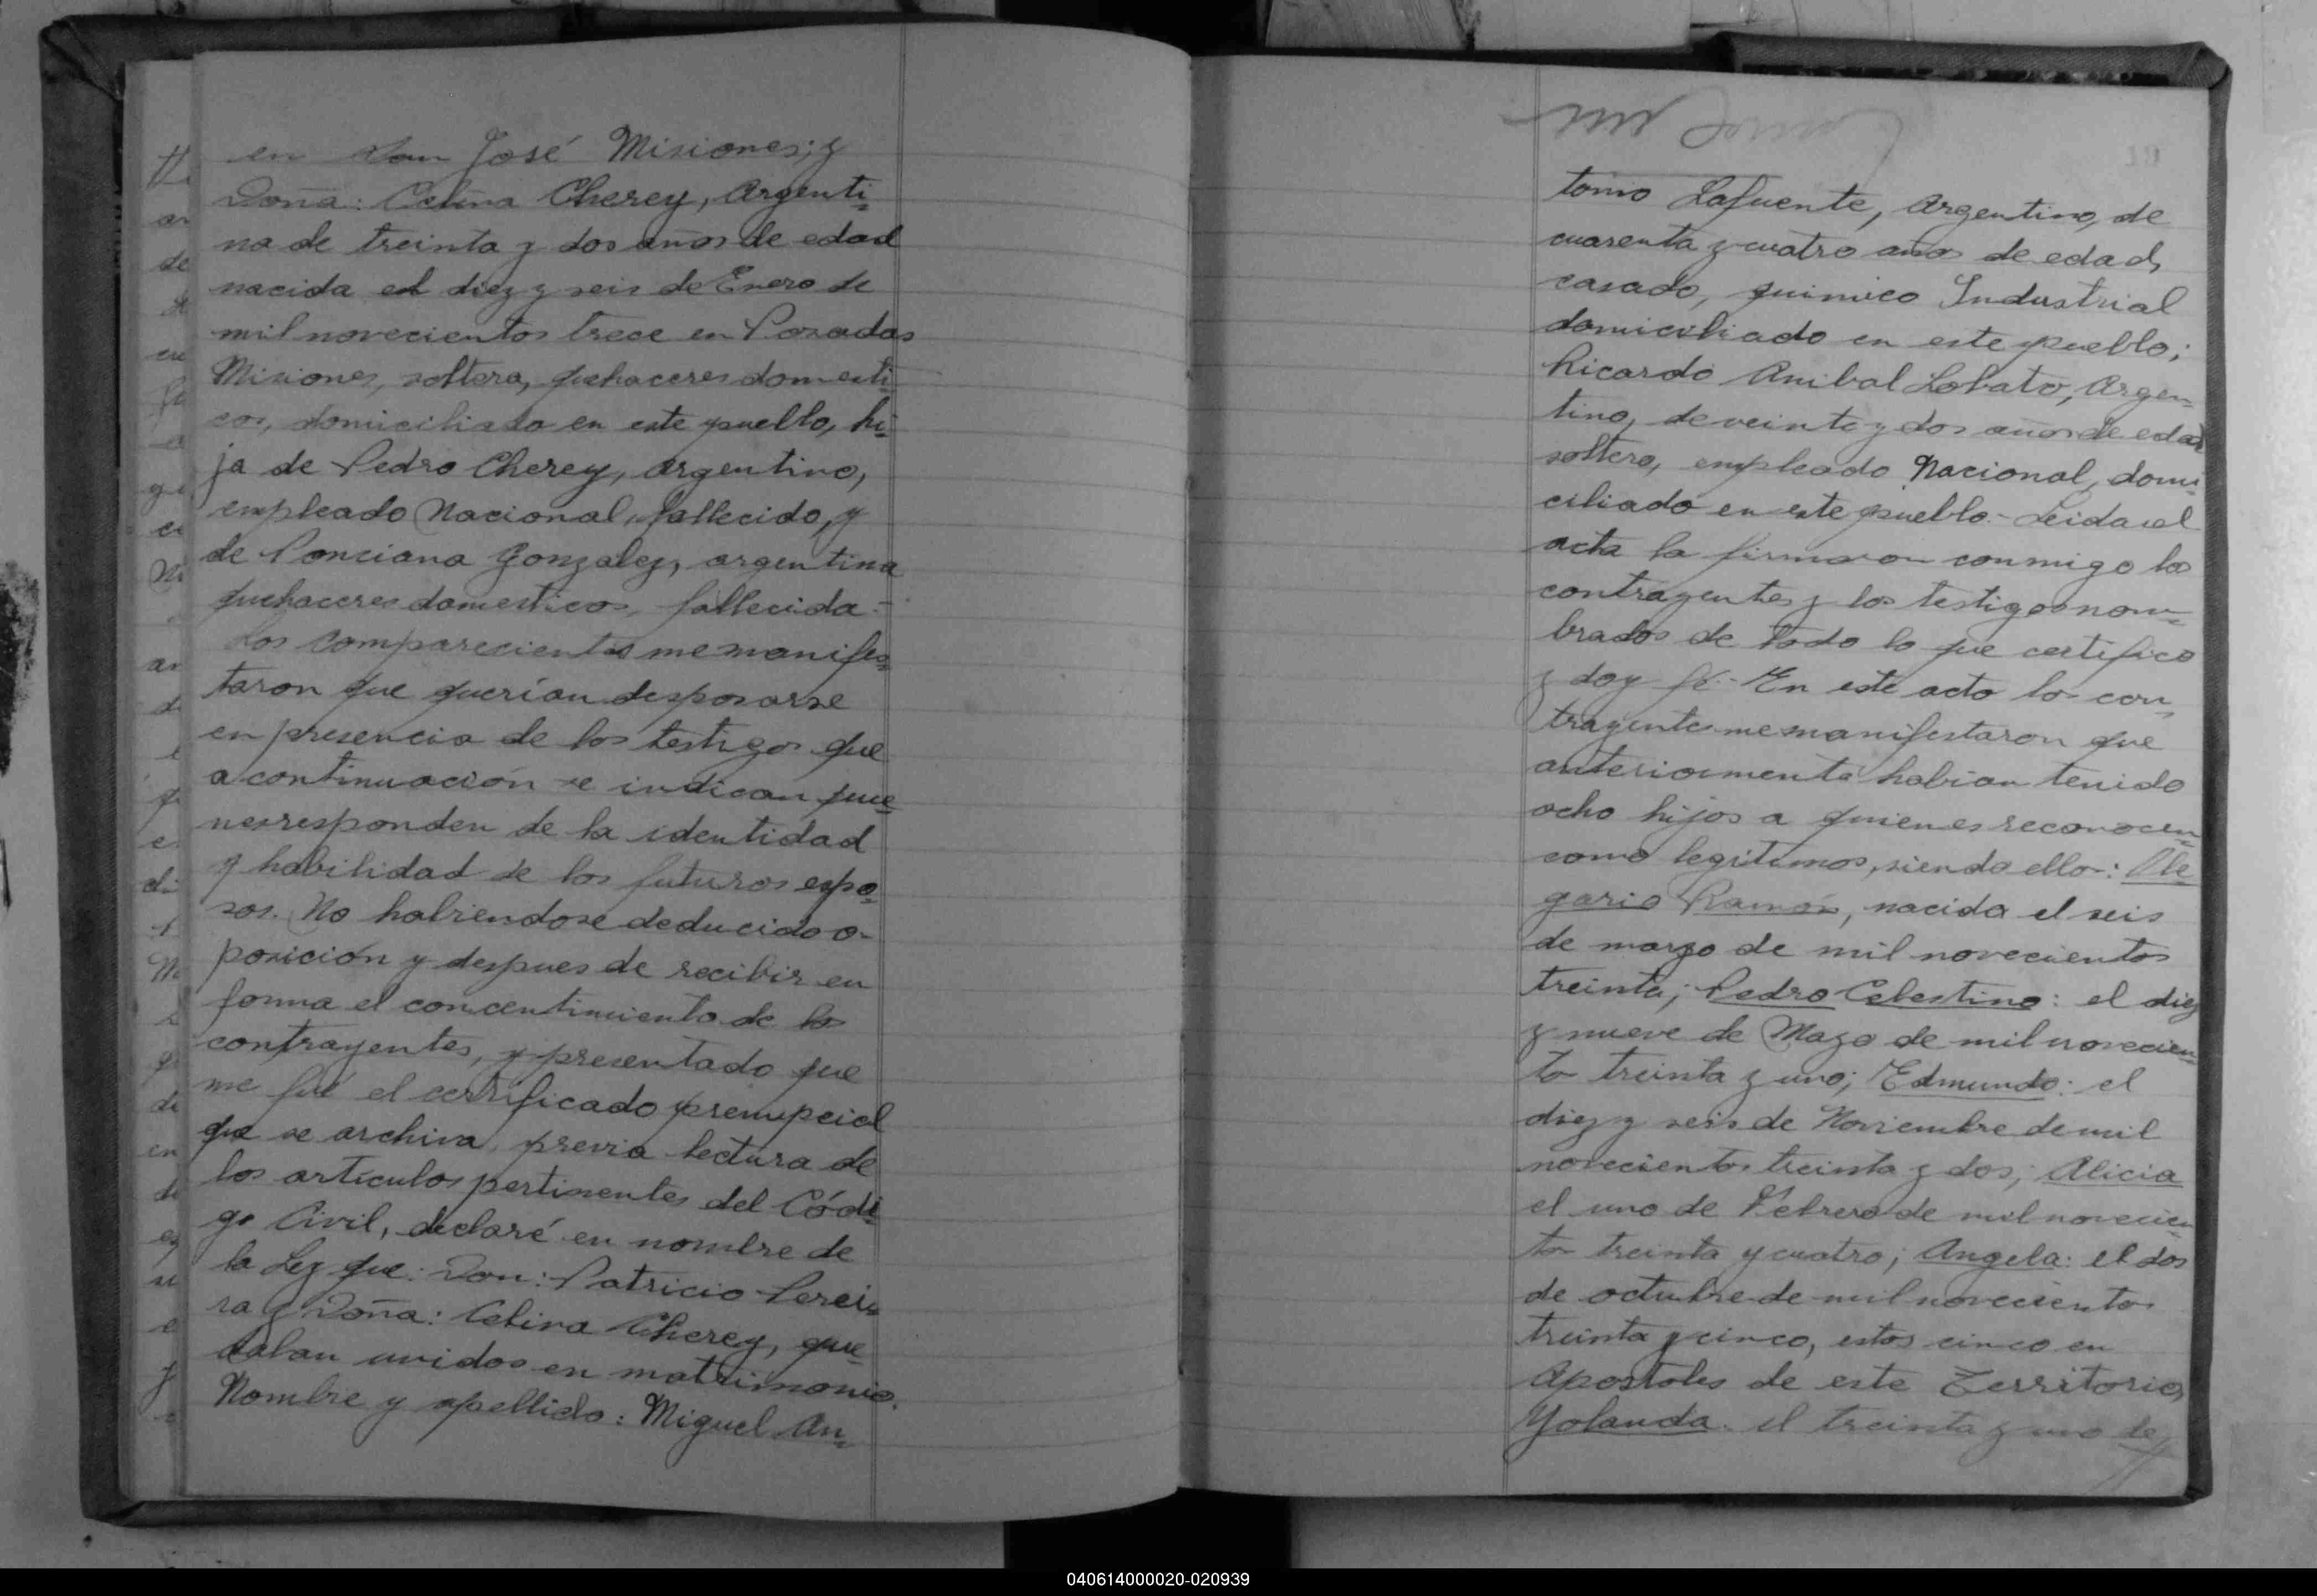 en San José Misiones; y
Doña: Celina Cherey, Argenti=
na de treinta y dos años de edad
nacida el diez y seis de Enero de
mil novecientos trece en Posadas
Misiones, soltera, quehaceres domesti=
cos, domiciliada en este pueblo, hi=
ja de Pedro Cherey, argentino,
empleado Nacional, fallecido, y
de Ponciana Gonzalez, argentina
quehaceres domesticos, fallecida.=
Los comparecientes me manifes=
taron que querían desposarse
en presencia de los testigos que
a continuación se indican quie=
nes responden de la identidad
y habilidad de los futuros espo=
sos. No habiendose deducido o-
posición y despues de recibir en
forma el concentimiento de los
contrayentes, y presentado que
me fué el certificado prenupcial
que se archiva, previa lectura de
los artículos pertinentes del Códi=
go Civil, declaré en nombre de
la Ley que: Don: Patricio Perei=
ra y Doña: Celina Cherey, que=
daban unidos en matrimonio.
Nombre y apellido: Miguel An=
19
tonio Lafuente, Argentino, de
cuarenta y cuatro años de edad,
casado, quimico Industrial
domiciliado en este pueblo;
Ricardo Anibal Lobato, Argen=
tino, de veinte y dos años de edad
soltero, empleado Nacional, domi=
ciliado en este pueblo.- Leida el
acta la firmaron conmigo los
contrayentes y los testigos nom=
brados de todo lo que certifico
y doy fé.- En este acto los con=
trayentes me manifestaron que
anteriormente habían tenido
ocho hijos a quienes reconocen
como legítimos, siendo ellos: Ole=
gario Ramón, nacida el seis
de marzo de mil novecientos
treinta; Pedro Celestino: el diez
y nueve de Mayo de mil novecien=
tos treinta y uno; Edmundo: el
diez y seis de Noviembre de mil
novecientos treinta y dos; Alicia
el uno de Febrero de mil novecien=
tos treinta y cuatro; Angela: el dos
de octubre de mil novecientos
treinta y cinco, estos cinco en
Apostoles de este Territorio,
Yolanda: el treinta y uno de
040614000020-020939